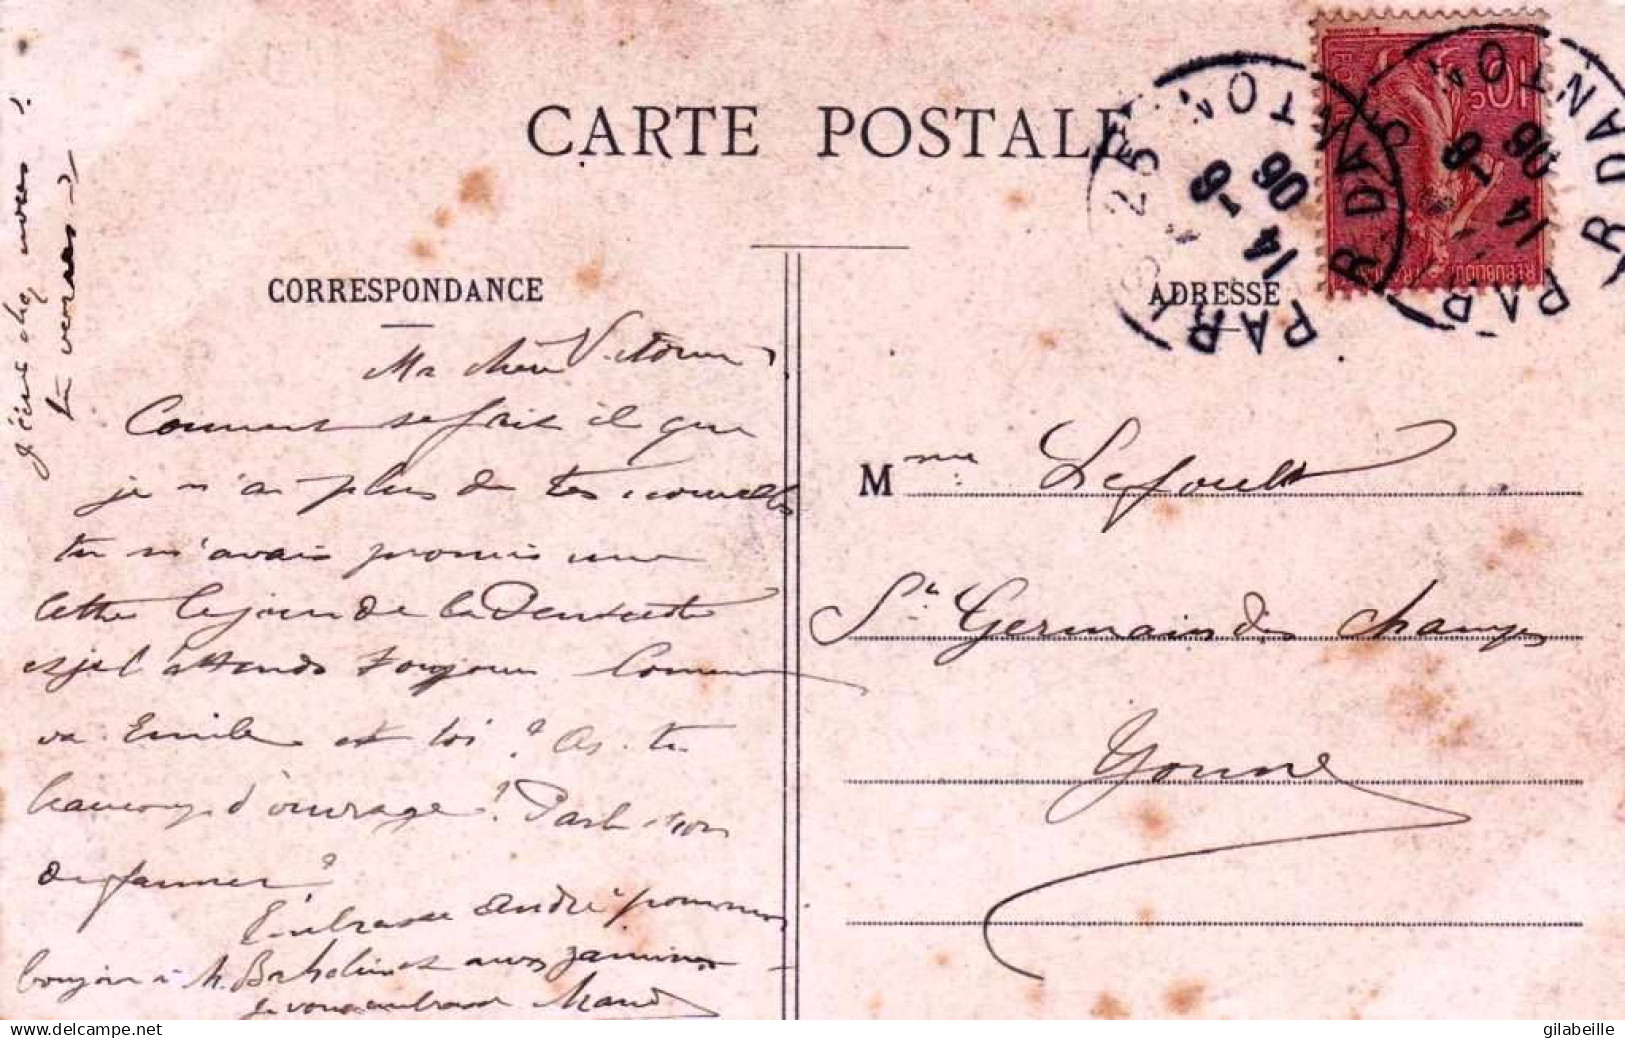 CARTE POSTALE
CORRESPONDANCE
Ma chère Victorine
Comment se fait il que
je n'ai plus de tes nouvelles
tu m'avais promis une
lettre le jour de la Pentecôte
et je l'attends toujours Comment
va Emile et toi ? As-tu
beaucoup d'ouvrage ? Parle-t-on
de
Embrasse André pour moi
bonjour à M. et aux gamines
Je vous embrasse Maud
J'écris chez nous !
ADRESSE
Mme Lefoult
St Germain des Champs
Yonne
PARIS 25 R DANTON
14
8-6
06
PARIS 25 R DANTON
14
8-6
06
10c
gilabeille
www.delcampe.net